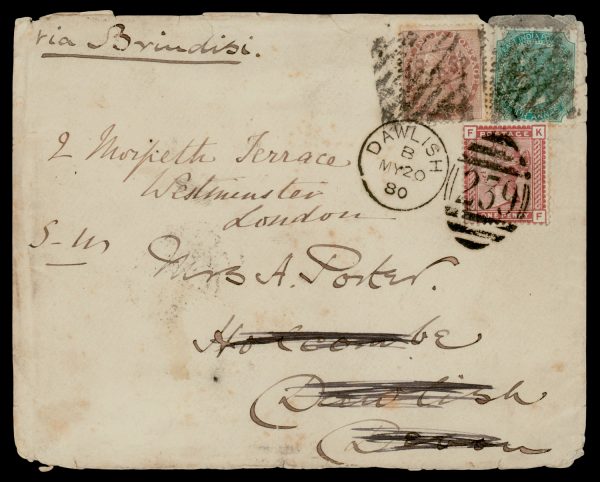 via Brindisi.
DAWLISH
B
MY 20
80
239
F K
POSTAGE
ONE PENNY F
2 Morpeth Terrace
Westminster
London
S-W
Mrs A. Porter.
Holcombe
Dawlish
Devon